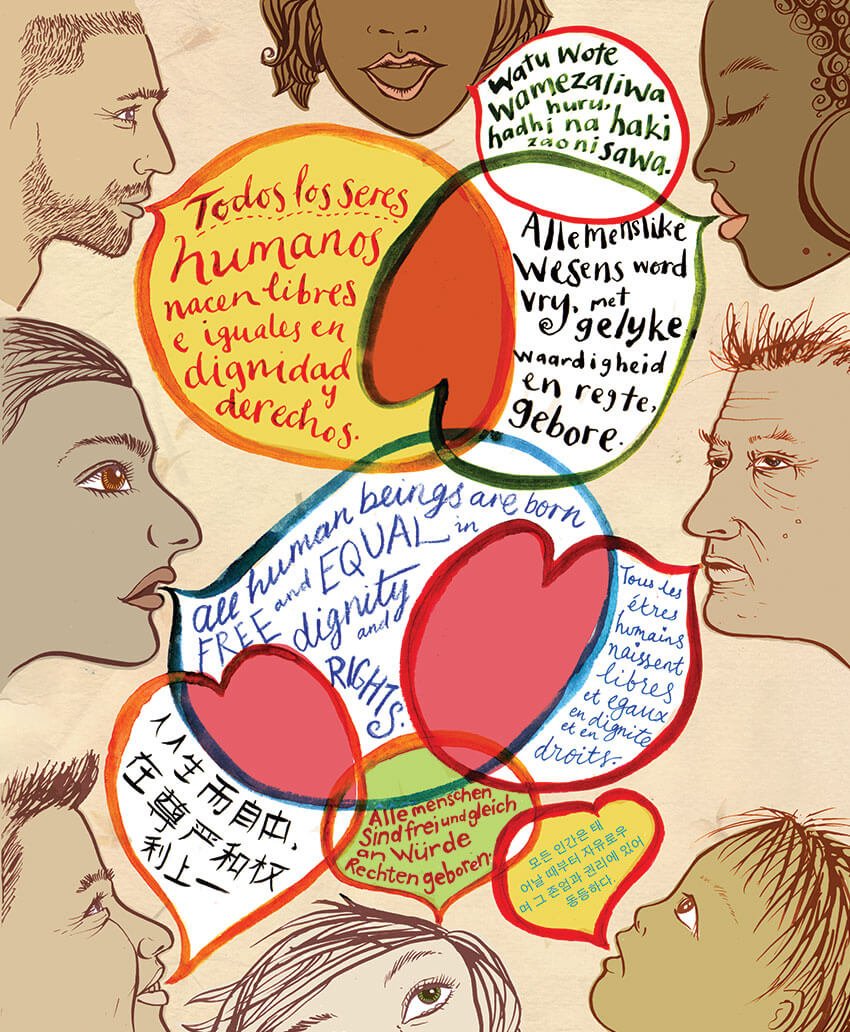 Watu wote
wamezaliwa
huru,
hadhi na haki
zao ni sawa.
Todos los seres
humanos
nacen libres
e iguales en
dignidad
y
derechos.
Alle menslike
wesens word
vry, met
gelyke
waardigheid
en regte,
gebore.
all human beings are born
FREE and EQUAL in
dignity
and
RIGHTS.
Tous les
étres
humains
naissent
libres
et egaux
en dignite
et en
droits.
人人生而自由,
在尊严和权
利上一
Alle menschen
Sind frei und gleich
an Würde
Rechten geboren.
모든 인간은 태
어날 때부터 자유로우
며 그 존엄과 권리에 있어
동등하다.